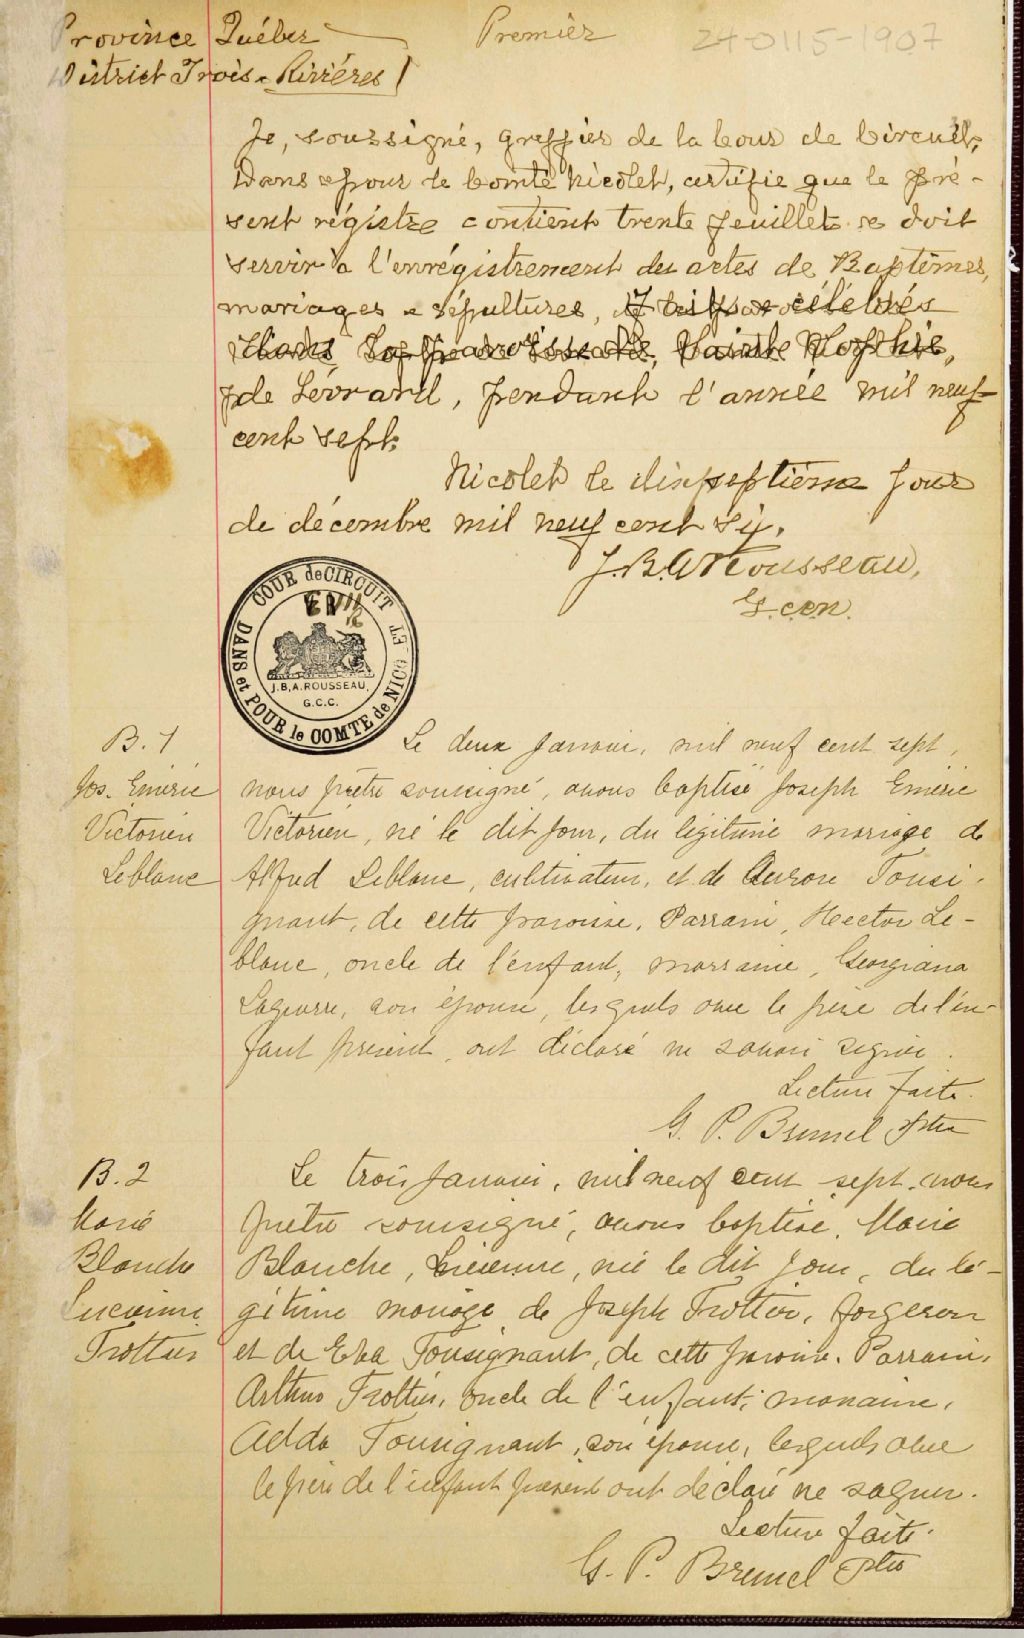 Province Québec Premier 24-0115-1907
District Trois-Rivières
Je, soussigné, greffier de la Cour de Circuit,
Dans & pour le Comté Nicolet, certifie que le pré-
sent régistre contient trente feuillets & doit
servir à l'enrégistrement des actes de Baptêmes,
mariages & sépultures, faits & célébrés
dans la paroisse de Sainte Sophie,
de Lévrard, pendant l'année mil neuf
cent sept.
Nicolet le dixseptième jour
de décembre mil neuf cent six.
J.B.A Rousseau,
G.c.c.n.
COUR de CIRCUIT ET
DANS et POUR le COMTE de NICO
J.B.A. ROUSSEAU,
G.C.C.
B. 1
Jos. Eméric
Victorien
Leblanc
Le deux janvier, mil neuf cent sept,
nous prêtre soussigné, avons baptisé Joseph Eméric
Victorien, né le dit jour, du légitime mariage de
Alfred Leblanc, cultivateur, et de Aurore Tousi-
gnant, de cette paroisse. Parrain, Hector Le-
blanc, oncle de l'enfant, marraine, Georgiana
son épouse, lesquels avec le père de l'en-
fant présent, ont déclaré ne savoir signer.
Lecture faite.
G. P. Brunel Ptre
B. 2
Marie
Blanche
Lucienne
Trottier
Le trois janvier, mil neuf cent sept, nous
prêtre soussigné, avons baptisé, Marie
Blanche, Lucienne, née le dit jour, du lé-
gitime mariage de Joseph Trottier, forgeron
et de Eva Tousignant, de cette paroisse. Parrain,
Arthur Trottier, oncle de l'enfant; marraine,
Adda Tousignant, son épouse, lesquels avec
le père de l'enfant présent ont déclaré ne signer.
Lecture faite.
G. P. Brunel Ptre